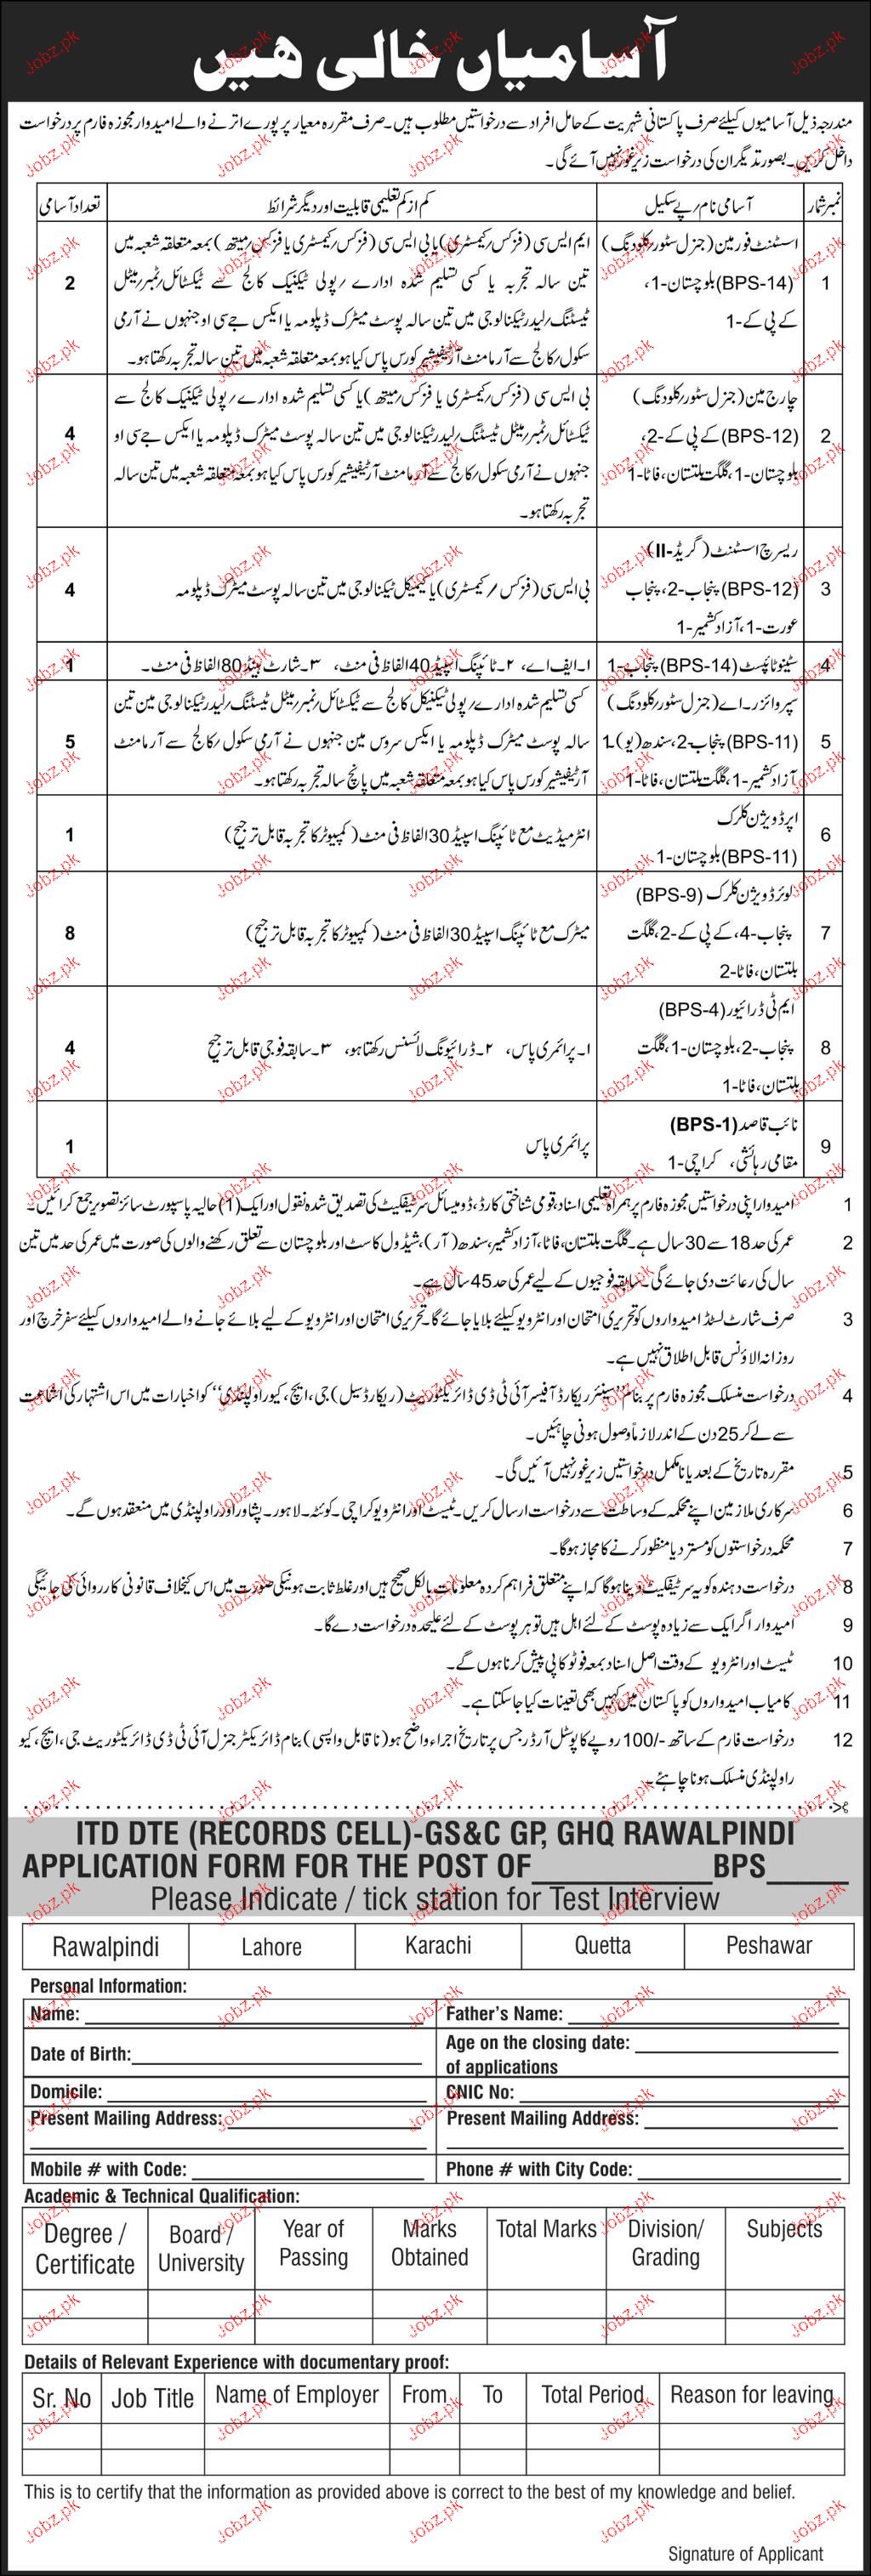 آسامیاں خالی ہیں
مندرجہ ذیل آسامیوں کیلئے صرف پاکستانی شہریت کے حامل افراد سے درخواستیں مطلوب ہیں۔ صرف مقررہ معیار پر پورے اترنے والے امیدوار مجوزہ فارم پر درخواست
داخل کریں۔ بصورت دیگر ان کی درخواست زیر غور نہیں آئے گی۔
نمبر شمار آسامی نام/پے سکیل کم از کم تعلیمی قابلیت اور دیگر شرائط تعداد آسامی
1 اسسٹنٹ فورمین (جنرل سٹور/کلودنگ) ایم ایس سی (فزکس/کیمسٹری) یا بی ایس سی (فزکس/کیمسٹری یا فزکس/میتھ) بمعہ متعلقہ شعبہ میں 2
(BPS-14) بلوچستان-1، تین سالہ تجربہ یا کسی تسلیم شدہ ادارے/پولی ٹیکنیک کالج سے ٹیکسٹائل/ٹمبر/میٹل
کے پی کے-1 ٹیسٹنگ/لیدر ٹیکنالوجی میں تین سالہ پوسٹ میٹرک ڈپلومہ یا ایکس جے سی او جنہوں نے آرمی
سکول/کالج سے آرمامنٹ آرٹیفیشیر کورس پاس کیا ہو بمعہ متعلقہ شعبہ میں تین سالہ تجربہ رکھتا ہو۔
2 چارج مین (جنرل سٹور/کلودنگ) بی ایس سی (فزکس/کیمسٹری یا فزکس/میتھ) یا کسی تسلیم شدہ ادارے/پولی ٹیکنیک کالج سے 4
(BPS-12) کے پی کے-2، ٹیکسٹائل/ٹمبر/میٹل ٹیسٹنگ/لیدر ٹیکنالوجی میں تین سالہ پوسٹ میٹرک ڈپلومہ یا ایکس جے سی او
بلوچستان-1، گلگت بلتستان، فاٹا-1 جنہوں نے آرمی سکول/کالج سے آرمامنٹ آرٹیفیشیر کورس پاس کیا ہو بمعہ متعلقہ شعبہ میں تین سالہ
تجربہ رکھتا ہو۔
3 ریسرچ اسسٹنٹ (گریڈ-II) 4
(BPS-12) پنجاب-2، پنجاب بی ایس سی (فزکس/کیمسٹری) یا کیمیکل ٹیکنالوجی میں تین سالہ پوسٹ میٹرک ڈپلومہ
عورت-1، آزاد کشمیر-1
4 سٹینو ٹائپسٹ (BPS-14) پنجاب-1 ۱۔ ایف اے، ۲۔ ٹائپنگ اسپیڈ 40 الفاظ فی منٹ، ۳۔ شارٹ ہینڈ 80 الفاظ فی منٹ۔ 1
5 سپروائزر۔ اے (جنرل سٹور/کلودنگ) کسی تسلیم شدہ ادارے/پولی ٹیکنیکل کالج سے ٹیکسٹائل/ٹمبر/میٹل ٹیسٹنگ/لیدر ٹیکنالوجی مین تین 5
(BPS-11) پنجاب-2، سندھ (یو)-1 سالہ پوسٹ میٹرک ڈپلومہ یا ایکس سروس مین جنہوں نے آرمی سکول/کالج سے آرمامنٹ
آزاد کشمیر-1، گلگت بلتستان، فاٹا-1 آرٹیفیشیر کورس پاس کیا ہو بمعہ متعلقہ شعبہ میں پانچ سالہ تجربہ رکھتا ہو۔
6 اپر ڈویژن کلرک انٹرمیڈیٹ مع ٹائپنگ اسپیڈ 30 الفاظ فی منٹ (کمپیوٹر کا تجربہ قابل ترجیح) 1
(BPS-11) بلوچستان-1
7 لوئر ڈویژن کلرک (BPS-9) 8
پنجاب-4، کے پی کے-2، گلگت میٹرک مع ٹائپنگ اسپیڈ 30 الفاظ فی منٹ (کمپیوٹر کا تجربہ قابل ترجیح)
بلتستان، فاٹا-2
8 ایم ٹی ڈرائیور (BPS-4) 4
پنجاب-2، بلوچستان-1، گلگت ۱۔ پرائمری پاس، ۲۔ ڈرائیونگ لائسنس رکھتا ہو، ۳۔ سابقہ فوجی قابل ترجیح
بلتستان، فاٹا-1
9 نائب قاصد (BPS-1) پرائمری پاس 1
مقامی رہائشی، کراچی-1
1 امیدوار اپنی درخواستیں مجوزہ فارم پر ہمراہ تعلیمی اسناد، قومی شناختی کارڈ، ڈومیسائل سرٹیفکیٹ کی تصدیق شدہ نقول اور ایک (1) حالیہ پاسپورٹ سائز تصویر جمع کرائیں۔
2 عمر کی حد 18 سے 30 سال ہے۔ گلگت بلتستان، فاٹا، آزاد کشمیر، سندھ (آر)، شیڈول کاسٹ اور بلوچستان سے تعلق رکھنے والوں کی صورت میں عمر کی حد میں تین
سال کی رعائت دی جائے گی۔ سابقہ فوجیوں کے لیے عمر کی حد 45 سال ہے۔
3 صرف شارٹ لسٹڈ امیدواروں کو تحریری امتحان اور انٹرویو کیلئے بلایا جائے گا۔ تحریری امتحان اور انٹرویو کے لیے بلائے جانے والے امیدواروں کیلئے سفر خرچ اور
روزانہ الاؤنس قابل اطلاق نہیں ہے۔
4 درخواست منسلک مجوزہ فارم پر بنام "سینئر ریکارڈ آفیسر آئی ٹی ڈی ڈائریکٹوریٹ (ریکارڈ سیل) جی، ایچ، کیو راولپنڈی" کو اخبارات میں اس اشتہار کی اشاعت
سے لے کر 25 دن کے اندر لازماً وصول ہونی چاہئیں۔
5 مقررہ تاریخ کے بعد یا نامکمل درخواستیں زیر غور نہیں آئیں گی۔
6 سرکاری ملازمین اپنے محکمہ کے وساطت سے درخواست ارسال کریں۔ ٹیسٹ اور انٹرویو کراچی۔ کوئٹہ۔ لاہور۔ پشاور اور راولپنڈی میں منعقد ہوں گے۔
7 محکمہ درخواستوں کو مسترد یا منظور کرنے کا مجاز ہوگا۔
8 درخواست دہندہ کو یہ سرٹیفکیٹ دینا ہوگا کہ اپنے متعلق فراہم کردہ معلومات بالکل صحیح ہیں اور غلط ثابت ہونیکی صورت میں اس کیخلاف قانونی کارروائی کی جائیگی
9 امیدوار اگر ایک سے زیادہ پوسٹ کے لئے اہل ہیں تو ہر پوسٹ کے لئے علیحدہ درخواست دے گا۔
10 ٹیسٹ اور انٹرویو کے وقت اصل اسناد بمعہ فوٹو کاپی پیش کرنا ہوں گے۔
11 کامیاب امیدواروں کو پاکستان میں کہیں بھی تعینات کیا جا سکتا ہے۔
12 درخواست فارم کے ساتھ -/100 روپے کا پوسٹل آرڈر جس پر تاریخ اجراء واضح ہو (نا قابل واپسی) بنام ڈائریکٹر جنرل آئی ٹی ڈی ڈائریکٹوریٹ جی، ایچ، کیو
راولپنڈی منسلک ہونا چاہئے۔
ITD DTE (RECORDS CELL)-GS&C GP, GHQ RAWALPINDI
APPLICATION FORM FOR THE POST OF ____________ BPS______
Please Indicate / tick station for Test Interview
Rawalpindi Lahore Karachi Quetta Peshawar
Personal Information:
Name: Father's Name:
Date of Birth: Age on the closing date:
of applications
Domicile: CNIC No:
Present Mailing Address: Present Mailing Address:
Mobile # with Code: Phone # with City Code:
Academic & Technical Qualification:
Degree / Certificate Board / University Year of Passing Marks Obtained Total Marks Division/ Grading Subjects
Details of Relevant Experience with documentary proof:
Sr. No Job Title Name of Employer From To Total Period Reason for leaving
This is to certify that the information as provided above is correct to the best of my knowledge and belief.
Signature of Applicant
Jobz.pk